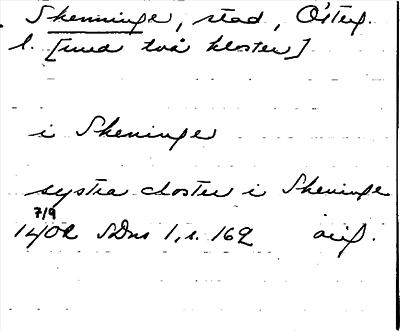 Skenninge, stad, Österg.
l. [med två kloster]
i Skeninge
systra closter i Skeninge
7/9
1402 SDns 1, s. 162 orig.